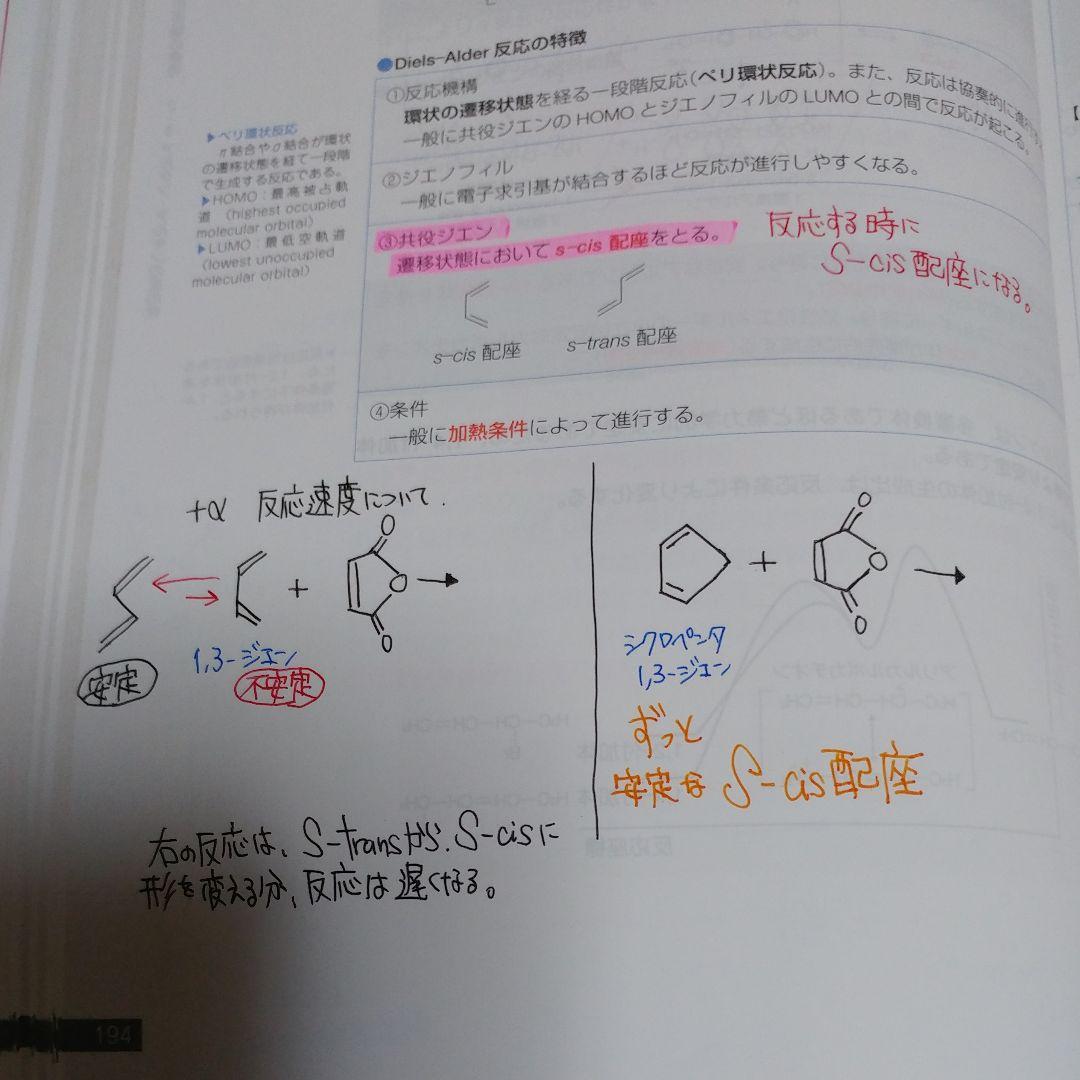 ●Diels–Alder 反応の特徴
①反応機構
環状の遷移状態を経る一段階反応(ペリ環状反応)。また、反応は協奏的に進行する。
一般に共役ジエンの HOMO とジエノフィルの LUMO との間で反応が起こる。
▶ペリ環状反応
π結合やσ結合が環状
の遷移状態を経て一段階
で生成する反応である。
▶HOMO：最高被占軌
道 (highest occupied
molecular orbital)
▶LUMO：最低空軌道
(lowest unoccupied
molecular orbital)
②ジエノフィル
一般に電子求引基が結合するほど反応が進行しやすくなる。
③共役ジエン
遷移状態において s–cis 配座をとる。
反応する時に
S-cis配座になる。
s–cis 配座
s–trans 配座
④条件
一般に加熱条件によって進行する。
+α 反応速度について.
O
+
O
O
1,3-ジエン
安定
不安定
O
+
O
O
シクロペンタ
1,3-ジエン
ずっと
安定な S-cis配座
右の反応は、S-transから、S-cisに
形を変える分、反応は遅くなる。
194